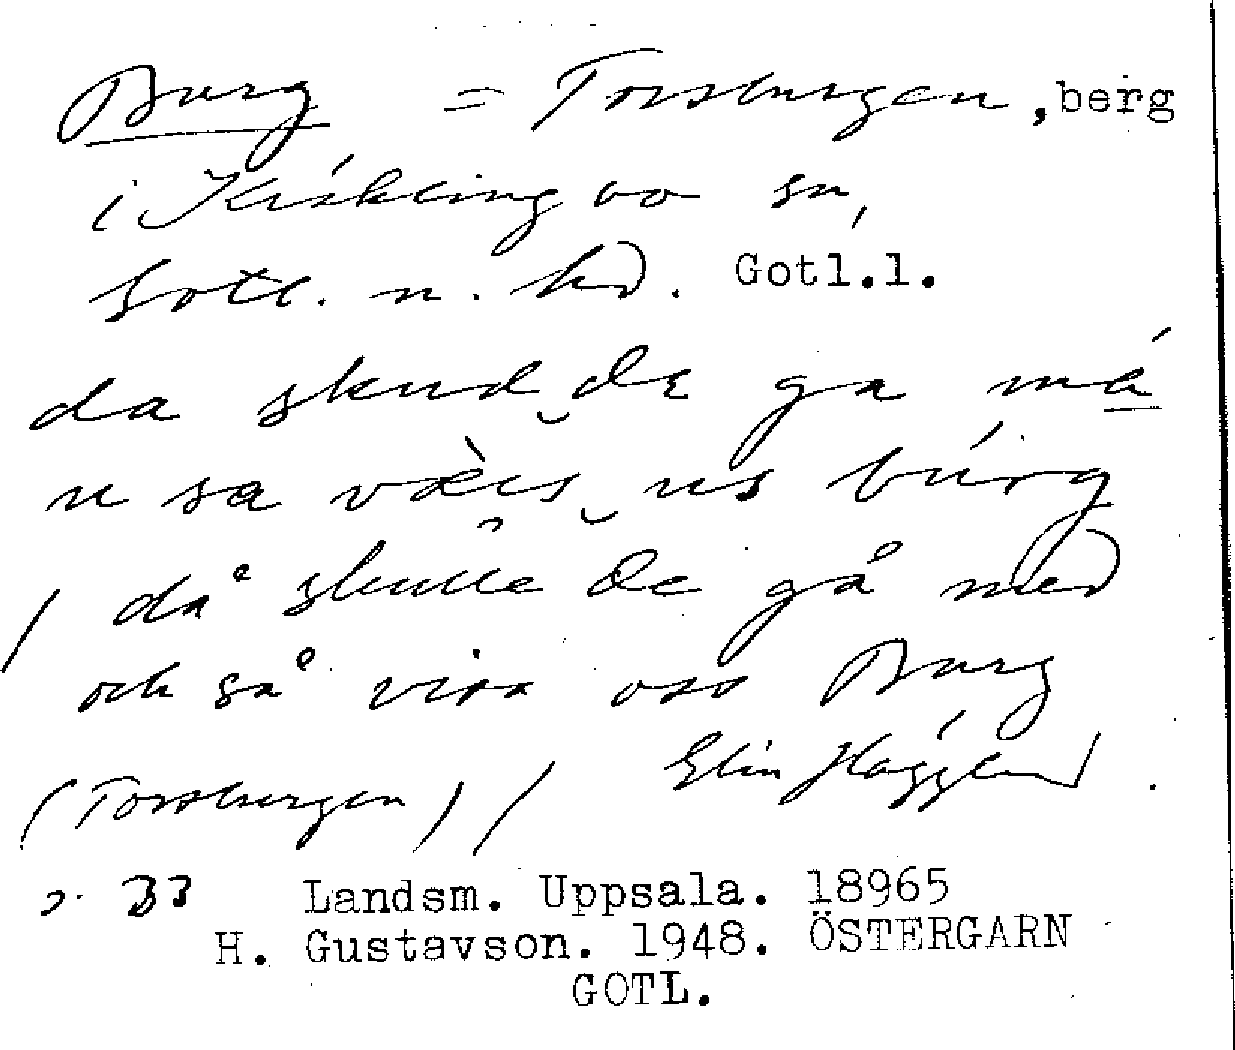 Burg = Torsburgen, berg
i Kräklingbo sn,
Gotl. n. hd. Gotl.l.
da skud‿de ga mä
u sa väis‿us búrg
/ då skulle de gå med
och så visa oss Burg
(Torsburgen) / Elin Hägglund.
s. B3 Landsm. Uppsala. 18965
H. Gustavson. 1948. ÖSTERGARN
GOTL.